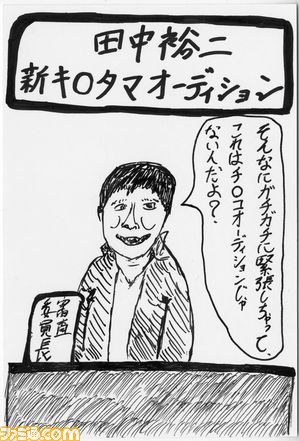 田中裕二
新キ〇タマオーディション
そんなにガチガチに緊張しちゃって、
これはチ〇コオーディションじゃ
ないんだよ?
審査
委員長
ファミ通.com